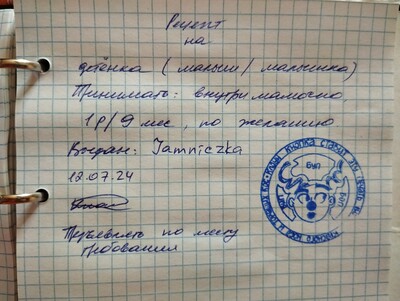 Рецепт
на
детёнка (малыш/мальчика)
Принимать: внутримамочно,
1р/9 мес, по желанию
Выдан: Jamniczka
12.07.24
Предъявлять по месту
требования